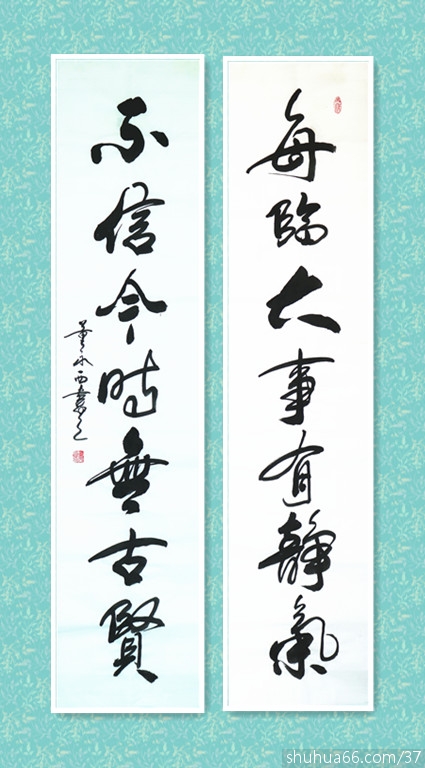 每臨大事有靜氣
不信今時無古賢
shuhua66.com/37